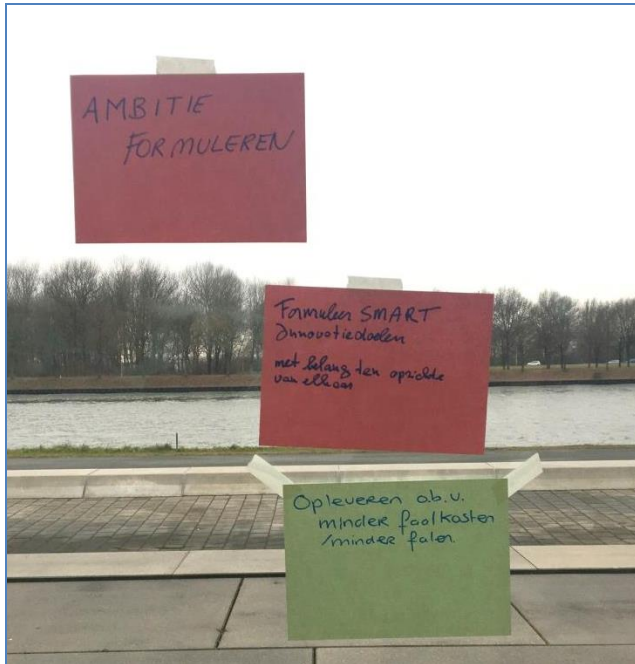 AMBITIE
FORMULEREN
Formuleer SMART
Innovatiedoelen
met belang ten opzichte
van elkaar
Opleveren o.b.v.
minder faalkosten
/minder falen